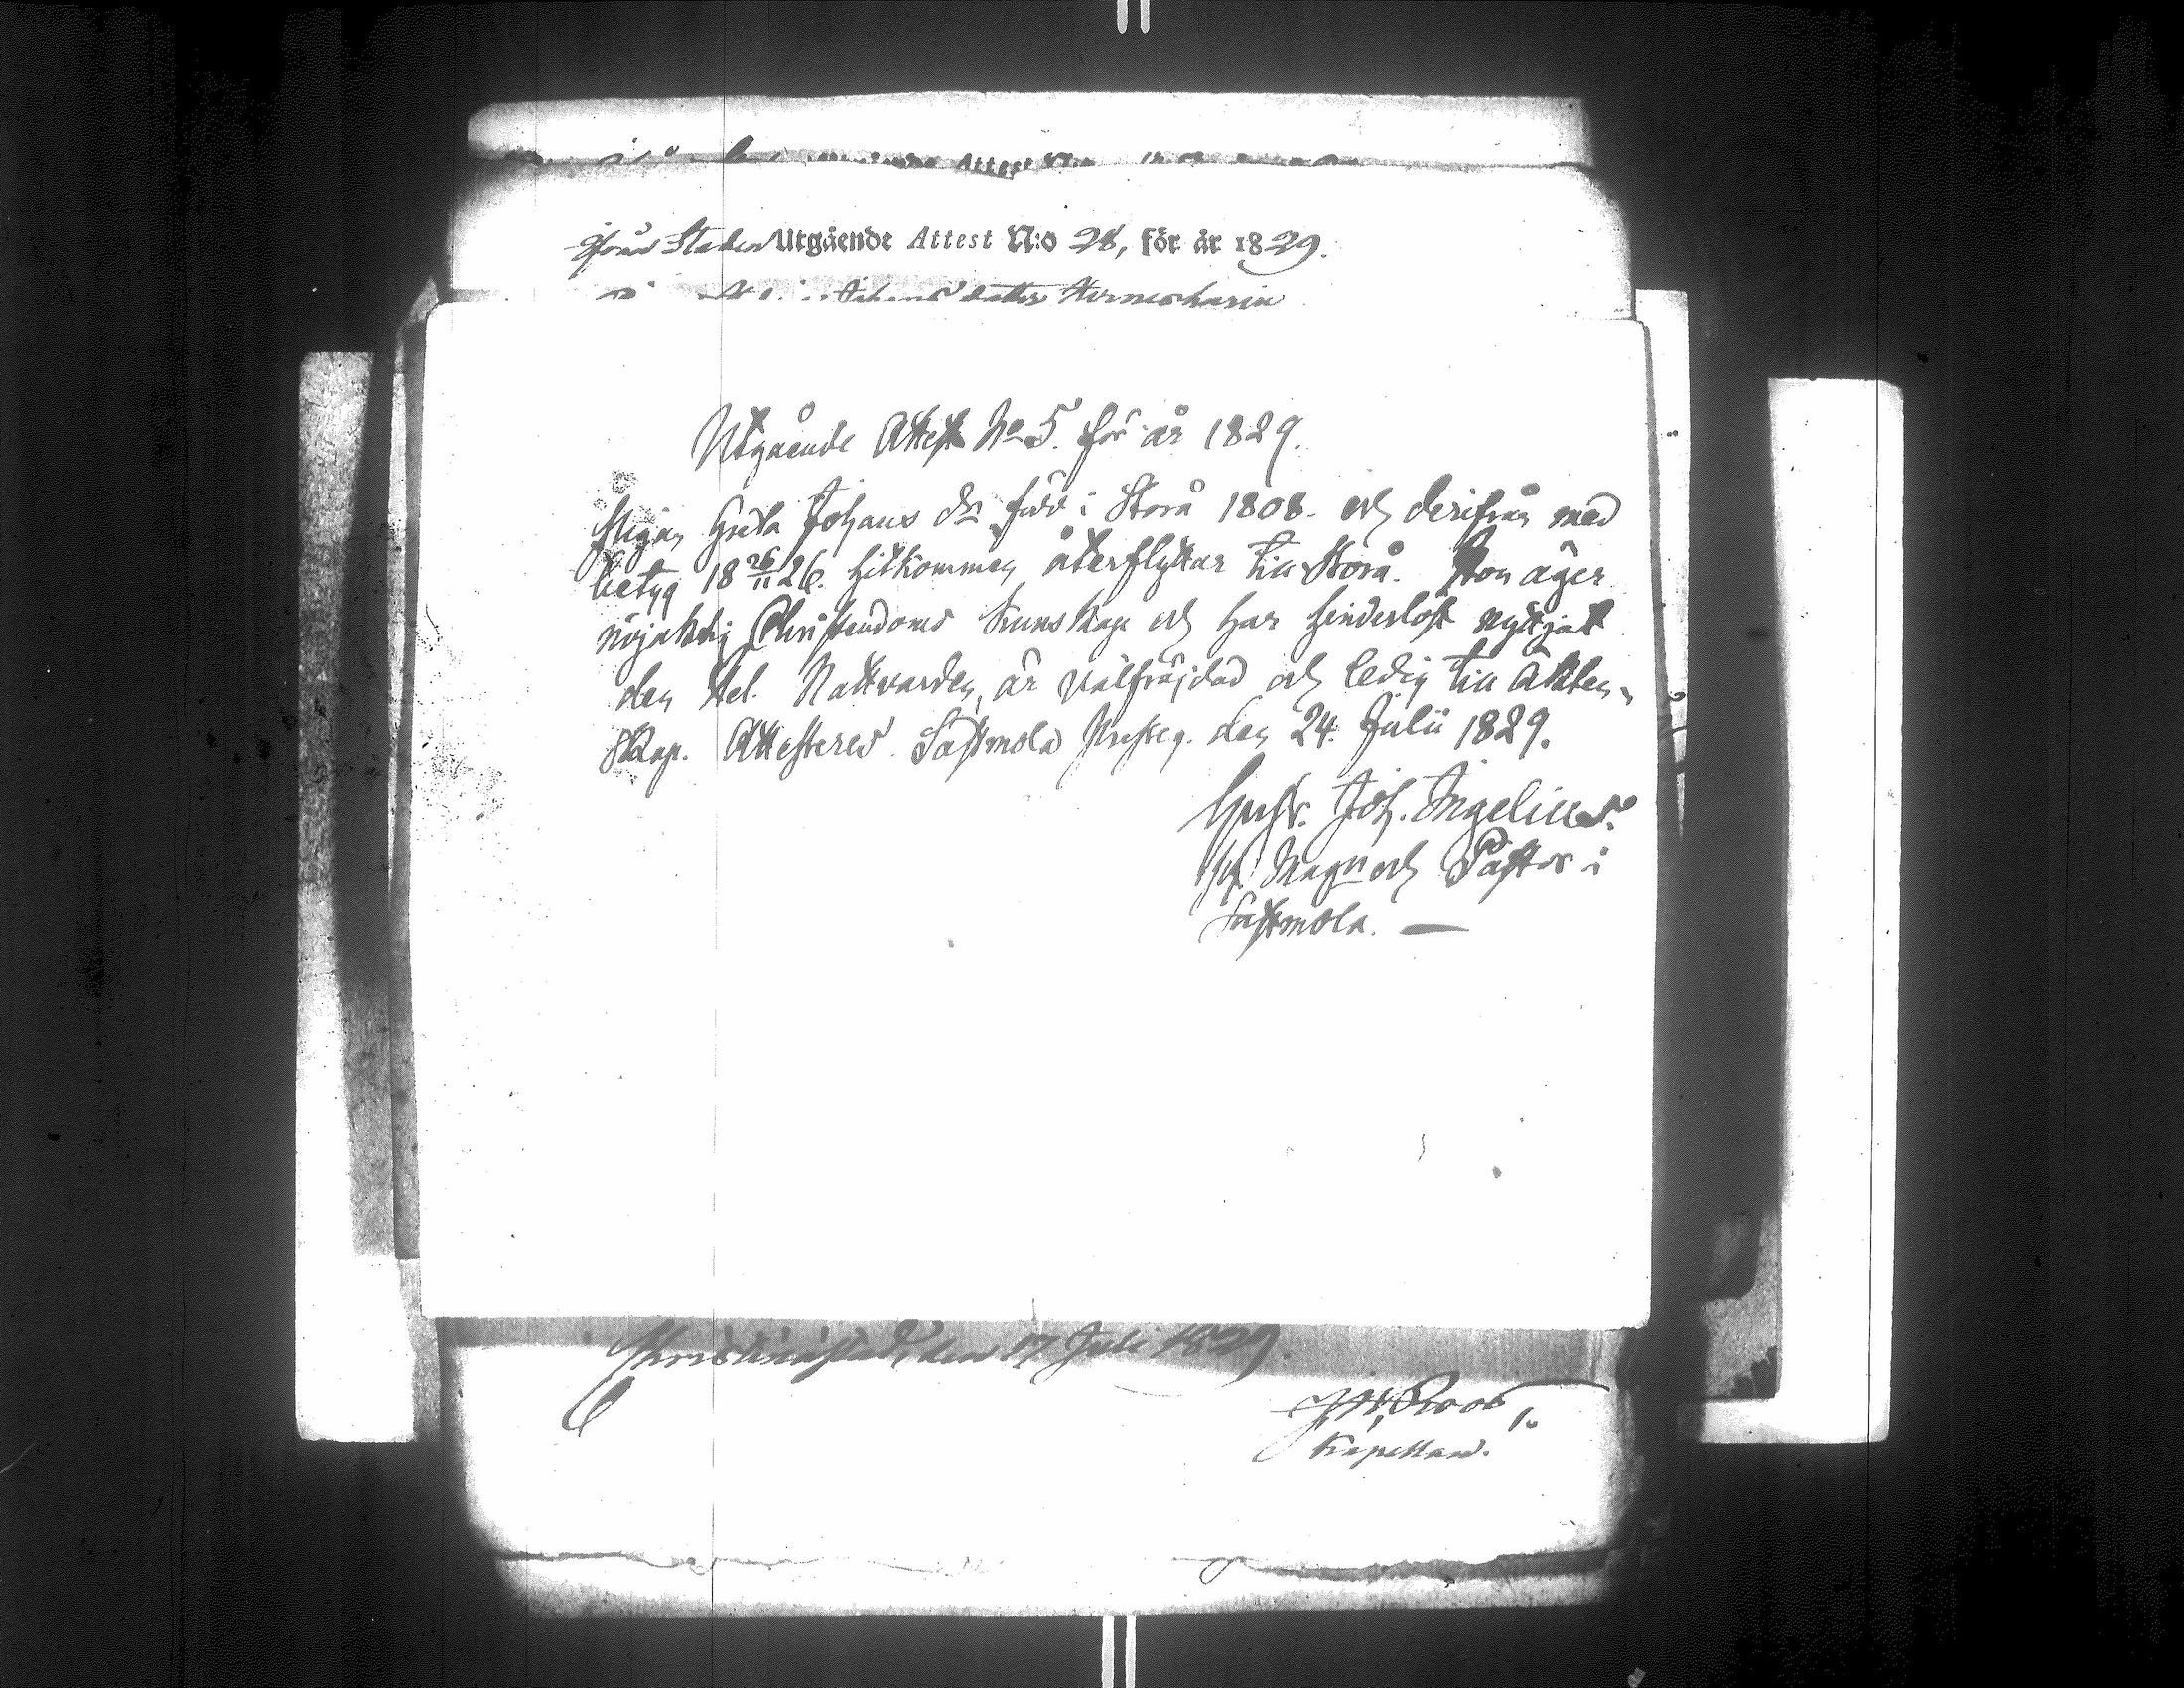 Från Staden Utgående Attest N:o 28, för år 1829.
Johans dotter
Utgående Attest No 5. för år 1829.
Pigan Greta Johans dr född i Storå 1808. och derifrån med
betyg 18 26/11 26. hitkommen återflyttar till Storå. Hon äger
nöjaktig Christendoms kunskap och har hinderlöst nyttjat
den Hel. Nattvarden, är välfräjdad och ledig till äkten-
skap. Attesteras Sastmola Presteg. den 24. Julii 1829.
Gust. Joh. Ingelius.
och Pastor i
Sastmola.
Christinestad, den 17 Juli 1829.
Kapellan.